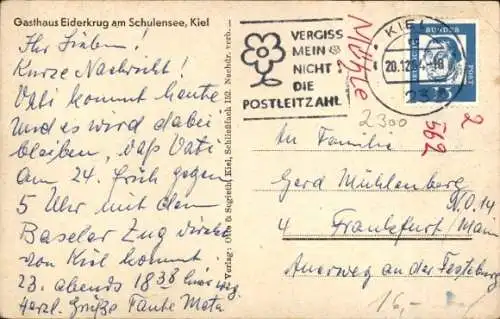 Gasthaus Eiderkrug am Schulensee, Kiel
Ihr Lieben!
Kurze Nachricht!
Vati kommt heute
und es wird dabei
bleiben, daß Vati
am 24. früh gegen
5 Uhr mit dem
Baseler Zug direkt
von Kiel kommt.
23. abends 18 38 hier weg.
Herzl. Grüße Tante Meta
Verlag: Otto & Sugieth, Kiel, Schließfach 152. Nachdr. verb.
VERGISS
MEIN
NICHT
DIE
POSTLEITZAHL
KIEL
20.12.
DEUTSCHE
BUNDES
POST
2300
2
562
An Familie
Gerd Mühlenberg
N.O. 14
4 Frankfurt/Main
Auerweg an der Festeburg
16,-